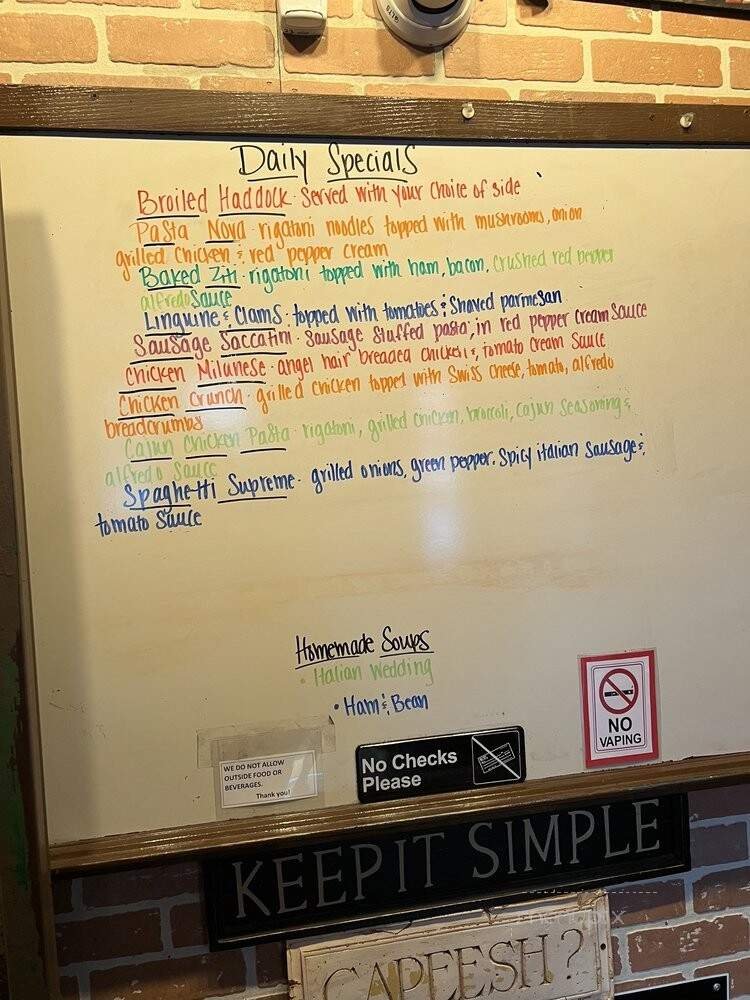 Daily Specials
Broiled Haddock · Served with your choice of side
Pasta Nova · rigatoni noodles topped with mushrooms, onion
grilled chicken & red pepper cream
Baked Ziti · rigatoni topped with ham, bacon, crushed red pepper
alfredo Sauce
Linguine & Clams · topped with tomatoes & Shaved parmesan
Sausage Saccatini · Sausage Stuffed pasta, in red pepper cream Sauce
Chicken Milanese · angel hair breaded chicken &, tomato cream Sauce
Chicken Crunch · grilled chicken topped with Swiss cheese, tomato, alfredo
breadcrumbs
Cajun Chicken Pasta · rigatoni, grilled chicken, broccoli, cajun Seasoning &
alfredo Sauce
Spaghetti Supreme · grilled onions, green pepper, Spicy italian Sausage &
tomato Sauce
Homemade Soups
• Italian Wedding
• Ham & Bean
NO
VAPING
WE DO NOT ALLOW
OUTSIDE FOOD OR
BEVERAGES.
Thank you!
No Checks
Please
KEEP IT SIMPLE
CAPEESH?